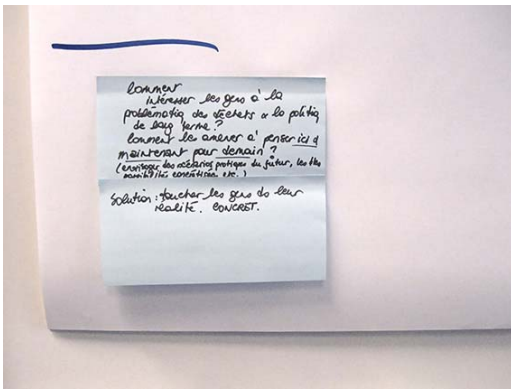 Comment
intéresser les gens à la
problématiq des déchets & la politiq
de long terme ?
Comment les amener à penser ici &
maintenant pour demain ?
(envisager les scénarios pratiques du futur, les
possibilités concrètes etc.)
Solution : toucher les gens ds leur
réalité. CONCRET.